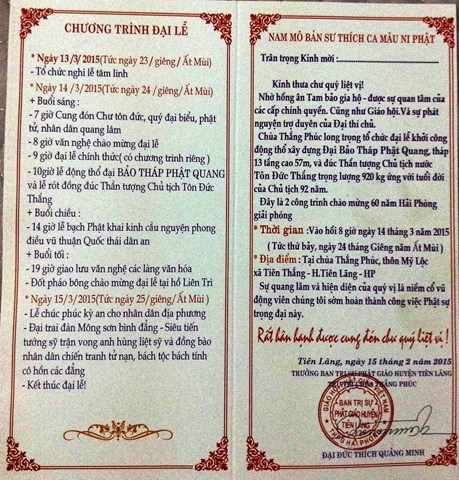 CHƯƠNG TRÌNH ĐẠI LỄ
* Ngày 13/3/2015(Tức ngày 23/giêng/Ất Mùi)
- Tổ chức nghi lễ tâm linh
* Ngày 14 /3/2015(Tức ngày 24 /giêng/ Ất Mùi)
+ Buổi sáng :
- 7 giờ Cung đón Chư tôn đức, quý đại biểu, phật
tử, nhân dân quang lâm
- 8 giờ văn nghệ chào mừng đại lễ
- 9 giờ đại lễ chính thức( có chương trình riêng )
- 10giờ lễ động thổ đại BẢO THÁP PHẬT QUANG
và lễ rót đồng đúc Thần tượng Chủ tịch Tôn Đức
Thắng
+ Buổi chiều :
- 14 giờ lễ bạch Phật khai kinh cầu nguyện phong
điều vũ thuận Quốc thái dân an
+ Buổi tối :
- 19 giờ giao lưu văn nghệ các làng văn hóa
- Đốt pháo bông chào mừng đại lễ tại hồ Liên Trì
* Ngày 15/3/2015(Tức ngày 25/giêng/Ất Mùi )
- Lễ chúc phúc kỳ an cho nhân dân địa phương
- Đại trai đàn Mông sơn bình đẳng - Siêu tiến
tướng sỹ trận vong anh hùng liệt sỹ và đồng bào
nhân dân chiến tranh tử nạn, bách tộc bách tính
cô hồn các đẳng
- Kết thúc đại lễ!
NAM MÔ BẢN SƯ THÍCH CA MÂU NI PHẬT
Trân trọng Kính mời :
Kính thưa chư quý liệt vị!
Nhờ hồng ân Tam bảo gia hộ - được sự quan tâm của
các cấp chính quyền. Cũng như Giáo hội.Và sự phát
nguyện trợ duyên của Đại thí chủ.
Chùa Thắng Phúc long trọng tổ chức đại lễ khởi công
động thổ xây dựng Đại Bảo Tháp Phật Quang, tháp
13 tầng cao 57m, và đúc Thần tượng Chủ tịch nước
Tôn Đức Thắng trọng lượng 920 kg ứng với tuổi đời
của Chủ tịch 92 năm.
Đây là 2 công trình chào mừng 60 năm Hải Phòng
giải phóng
* Thời gian :Vào hồi 8 giờ 14 tháng 3 năm 2015
( Tức thứ bảy, ngày 24 tháng Giêng năm Ất Mùi )
*Địa điểm : Tại chùa Thắng Phúc, thôn Mỹ Lộc
xã Tiên Thắng - H.Tiên Lãng - HP
Sự quang lâm và hiện diện của quý vị là niềm cổ vũ
động viên chúng tôi sớm hoàn thành công việc Phật sự
trọng đại này.
Rất hân hạnh được cung đón chư quý liệt vị !
Tiên Lãng, ngày 15 tháng 2 năm 2015
TRƯỞNG BAN TRỊ SỰ PHẬT GIÁO HUYỆN TIÊN LÃNG
THẮNG PHÚC
BAN TRỊ SỰ
PHẬT GIÁO HUYỆN
TIÊN LÃNG
ĐẠI ĐỨC THÍCH QUẢNG MINH